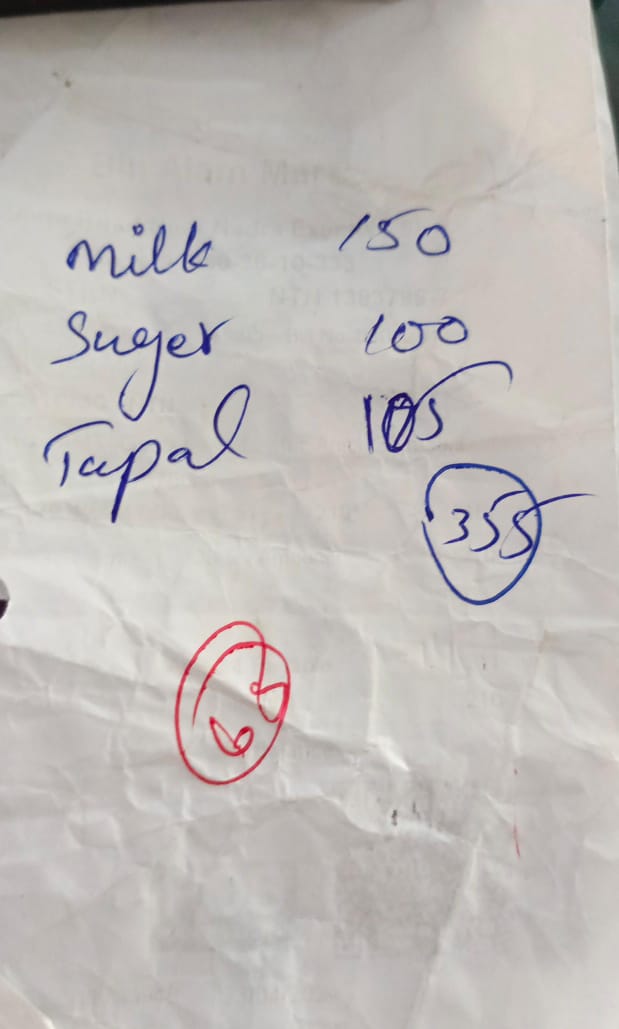 milk 150
Suger 100
Tapal 105
355